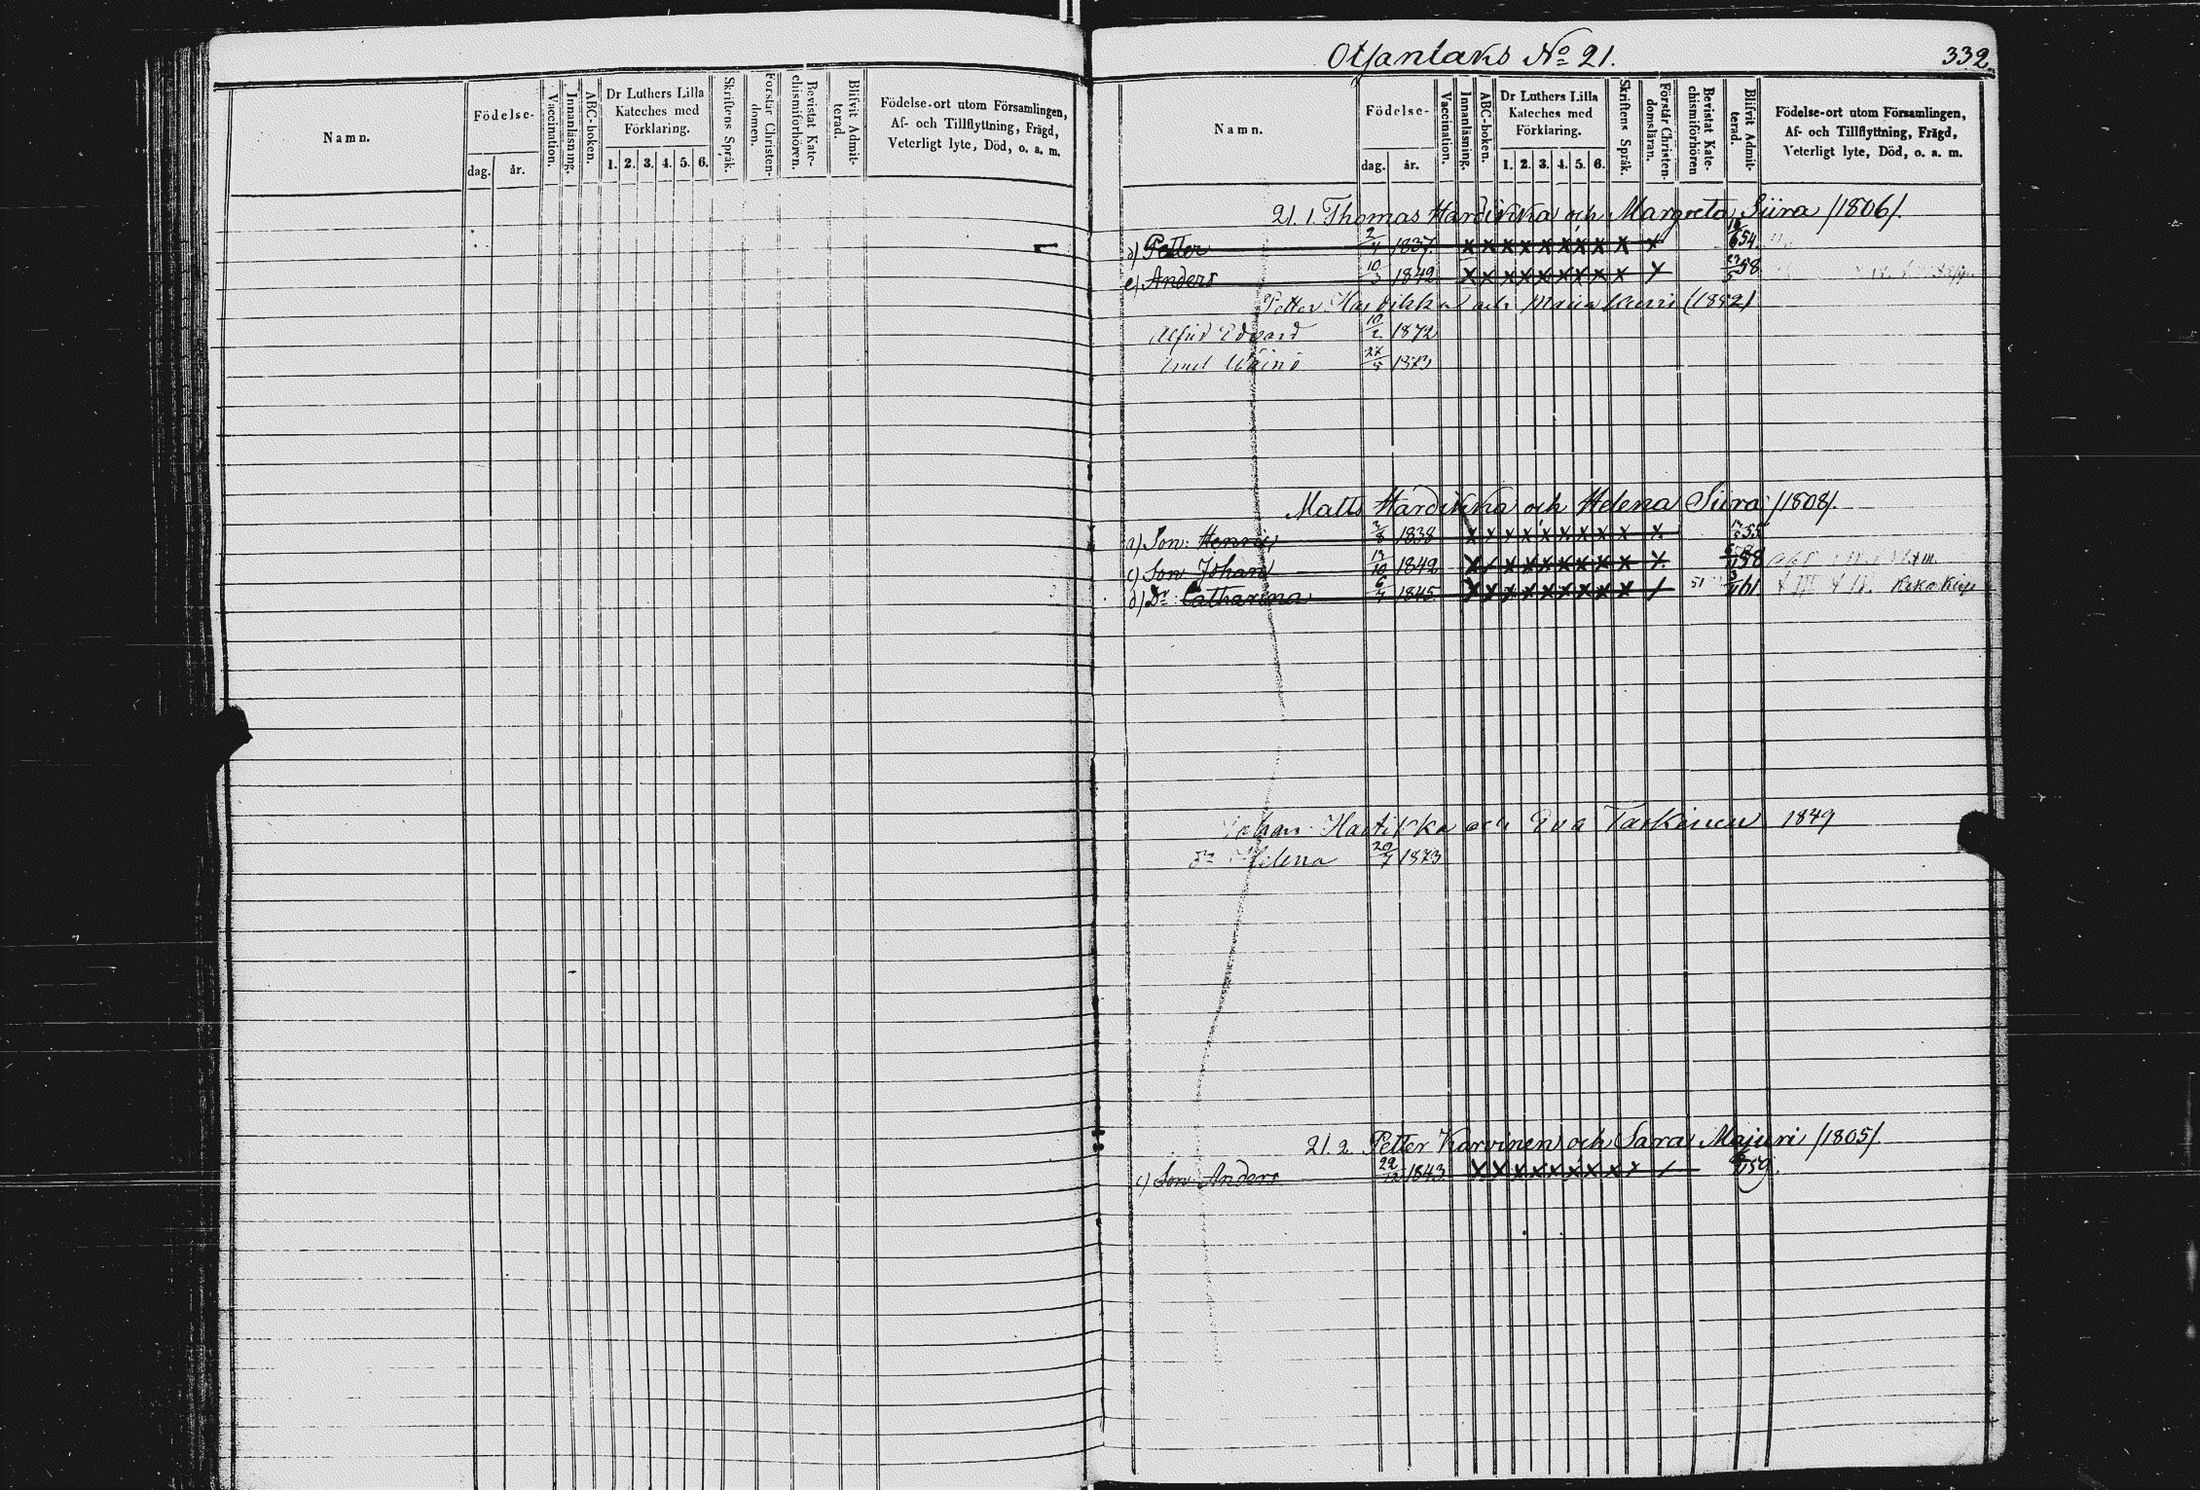 Namn.
Födelse-
dag. år.
Vaccination.
Innanläsning.
ABC-boken.
Dr Luthers Lilla
Kateches med
Förklaring.
1. 2. 3. 4. 5. 6.
Skriftens Språk.
Förstår Christen-
domen.
Bevistat Kate-
chismiförhören.
Blifvit Admit-
terad.
Födelse-ort utom Församlingen,
Af- och Tillflyttning, Frägd,
Veterligt lyte, Död, o. a. m.
No 21.
332.
Namn.
Födelse-
dag. år.
Vaccination.
Innanläsning.
ABC-boken.
Dr Luthers Lilla
Kateches med
Förklaring.
1. 2. 3. 4. 5. 6.
Skriftens Språk.
Förstår Christen-
domsläran.
Bevistat Kate-
chismiförhören
Blifvit Admit-
terad.
Födelse-ort utom Församlingen,
Af- och Tillflyttning, Frägd,
Veterligt lyte, Död, o. a. m.
21. 1. Thomas Hardikka och Margreta Siira /1806/.
d) Petter 2/4 1837 x x x x x x x x x x 54
e) Anders 10/3 1842 x x x x x x x x x x 58
Petter Hardikka och Maria (1852)
Alfrid Edvard 10/2 1872
Wäinö 27/5 1873
Matts Hardikka och Helena Siira /1808/.
a) Son: Henric 1838 x x x x x x x x x x 55
c) Son Johan 1842 x x x x x x x x x x 58
d) Dr Catharina 6/4 1845 x x x x x x x x x x 61
Johan Hartikka och Eva Tarkinen 1849
Dr Helena 20/7 1873
21. 2. Petter Karvinen och Sara Majuri /1805/.
c) Son Anders 22/12 1843 x x x x x x x x x x 59.